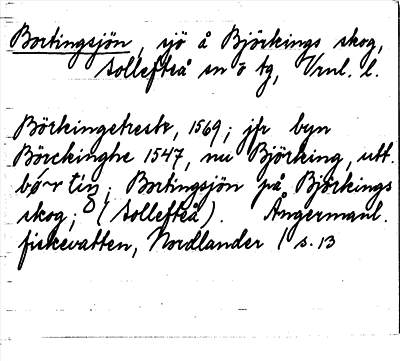 Bortingsjön, sjö å Björkings skog,
Sollefteå sn o tg, Vnl. l.
Börkingetresk, 1569; jfr byn
Börckinghe 1547, nu Björking, utt.
Bortingsjön på Björkings
skog; (Sollefteå). Ångermanl.
fiskevatten, Nordlander / s. 13